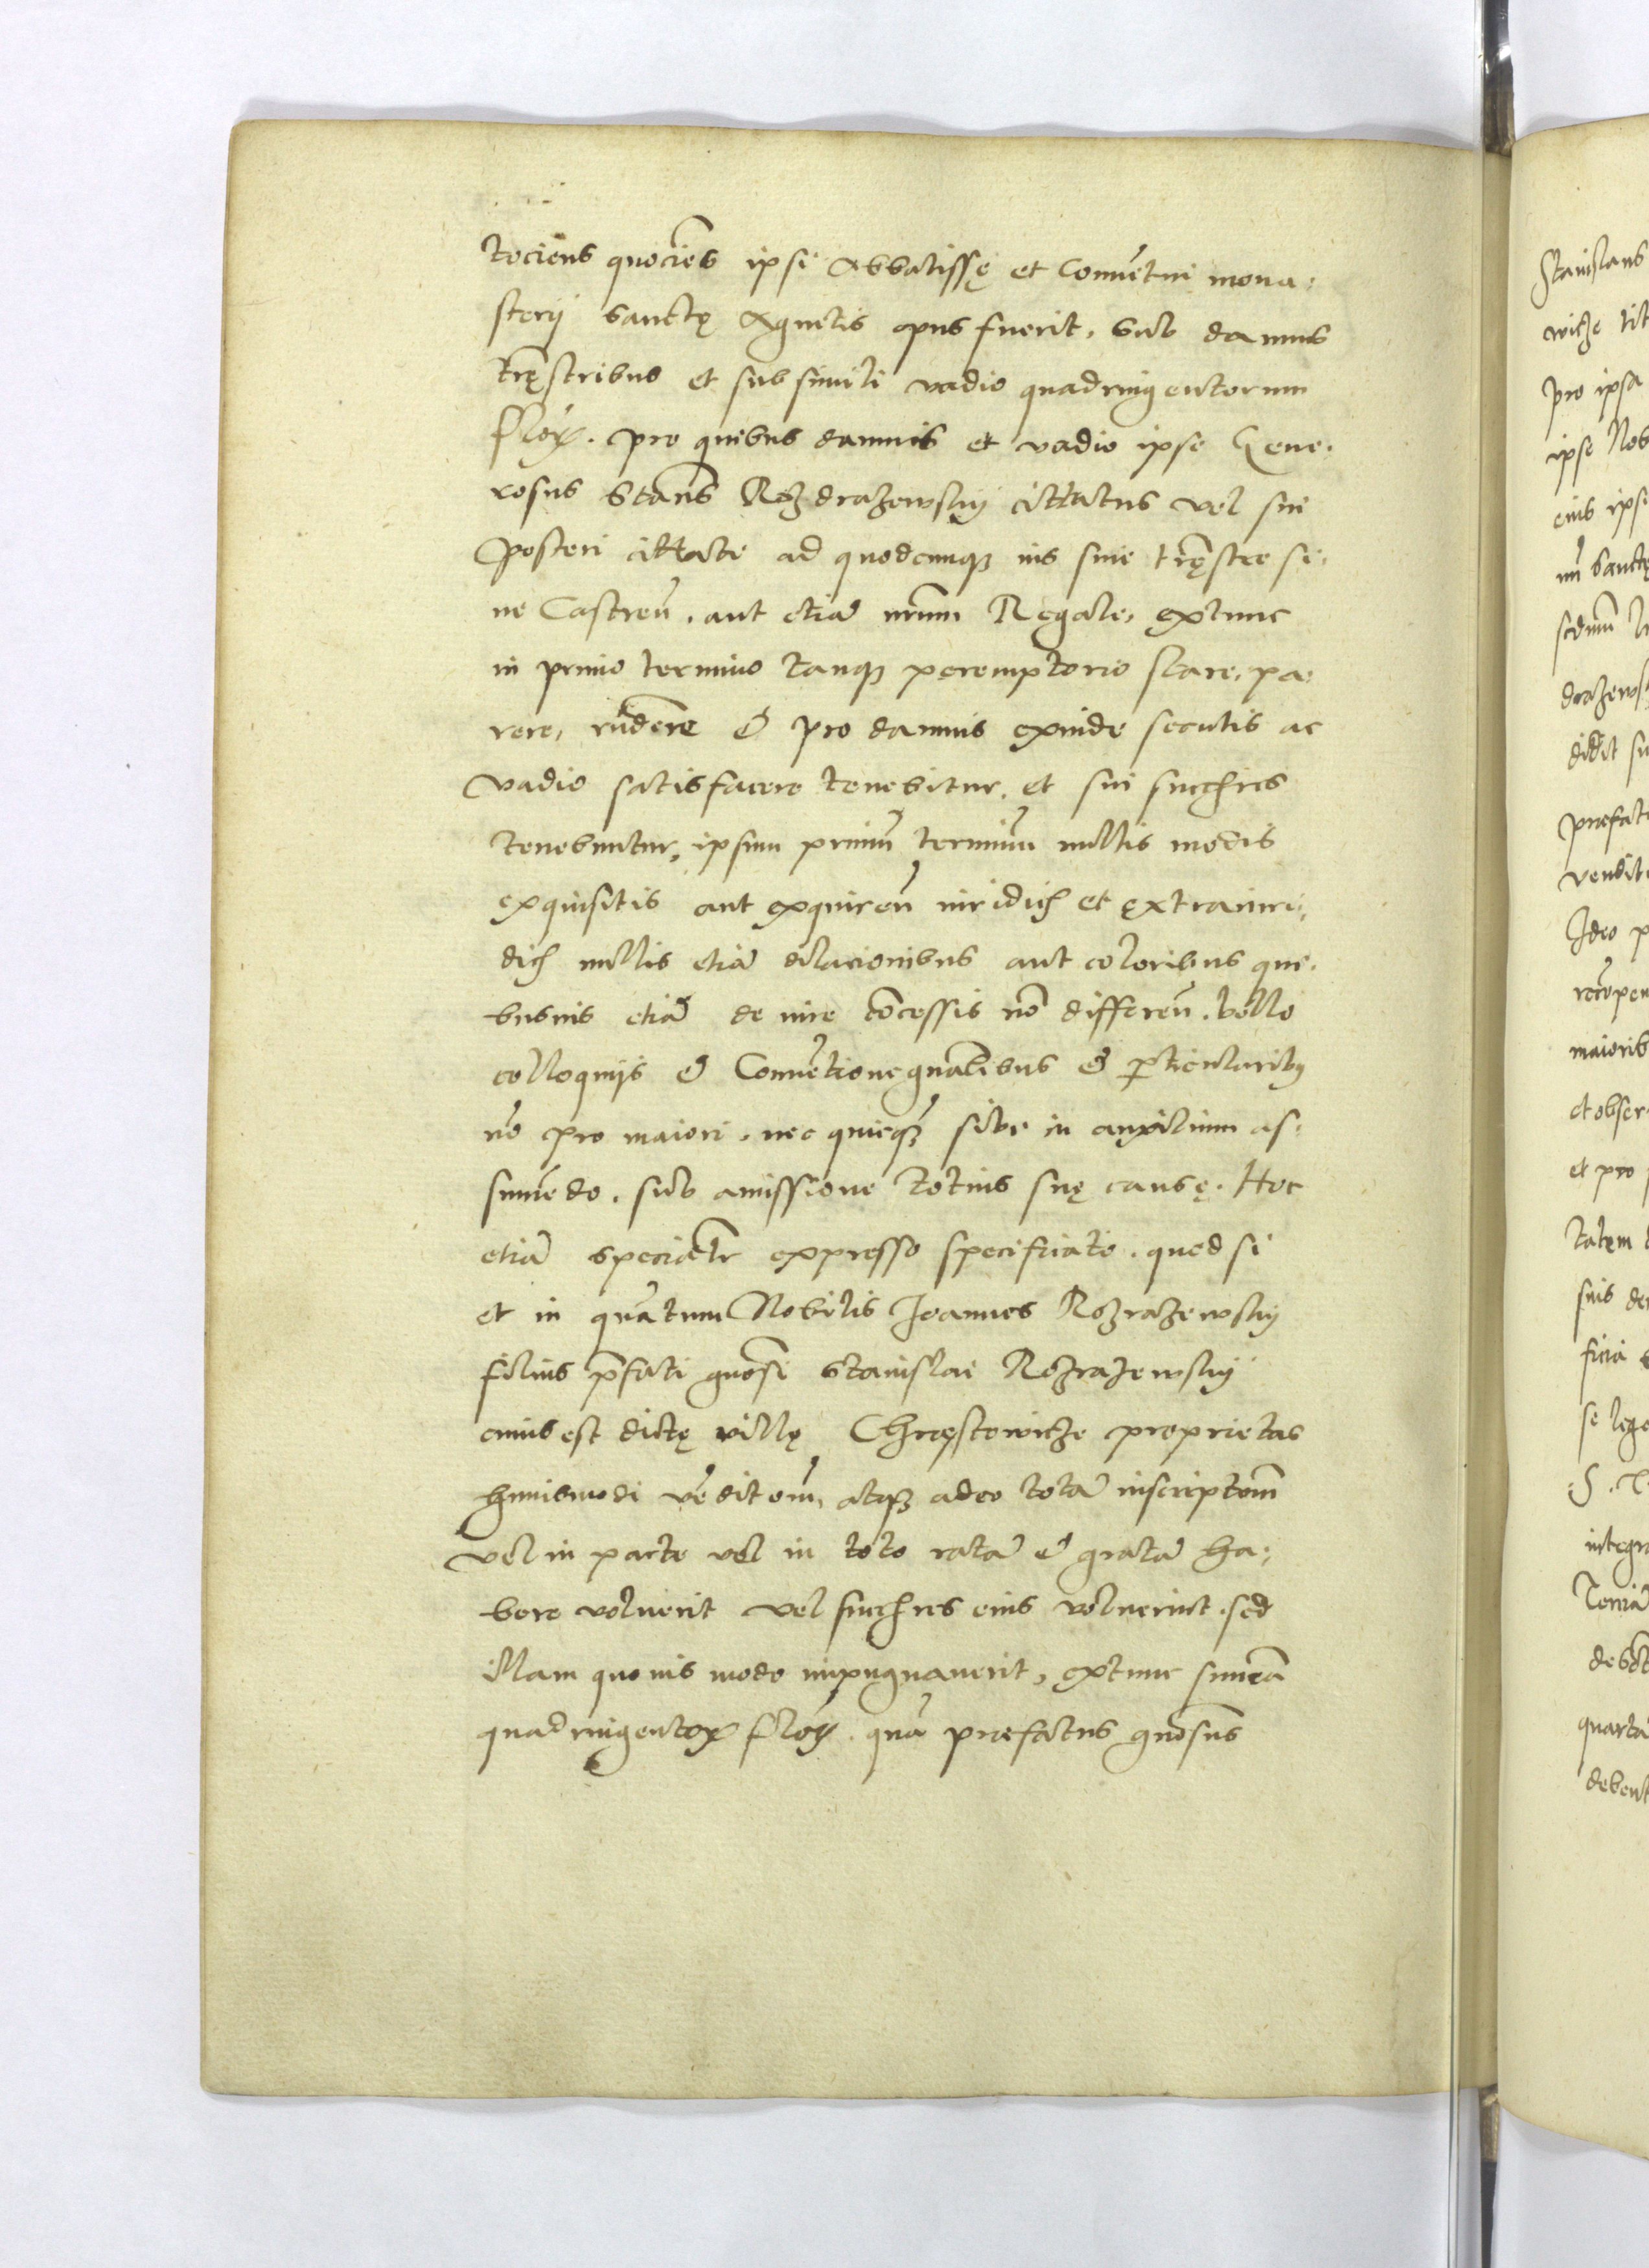 tociens quocie͂s ipsi Abbatissę et Conuẽtui mona-
sterij Sanctę Agnetis opus fuerit, Sub damnis
trę̃stribus et sub simili vadio quadringentorum
floꝝ. pro quibus damnis et vadio ipse Gene-
rosus Stan̄s Rozdrazewsky cittatus vel sui
posteri cittati ad quodcunqꝫ ius siue trę̃stre si-
ue Castreñ. aut etiã nr̃um Regale, extunc
in primo termino tanqꝫ peremptorio stare, pa-
rere, rñdere & pro damnis exinde secutis ac
vadio satisfacere tenebitur. et sui succ̃hres
tenebuntur, ipsum primũ terminũ nullis modis
exquisitis aut exquireñ iuridicꝭ et extraiuri-
dicꝭ nullis etiã dilacionibus aut coloribus qui-
busuis etiã de iure cõcessis nõ differeñ. bello
colloquijs & Conuẽtione gñalibus & ꝑticularibꝫ
nõ pro maiori. nec quicqꝫ̃ sibi in auxilium as-
sumẽdo. sub amissione totius suę causę. Hoc
etiã specialr̃ expresso specificato. quod si
et in quãtum Nobilis Joannes Rozrazewsky
filius p̃fati gnõsi Stanislai Rozrazewsky
cuius est dictę villę Chręstowicze proprietas
huiusmodi vẽditom̃, atqꝫ adeo totã inscriptom̃
vel in parte vel in toto ratã & gratã ha-
bere noluerit vel succ̃hres eius noluerint. sed
illam quouis modo impugnauerit, extunc summã
quadringentoꝝ floꝝ. quã praefatus gnõsus